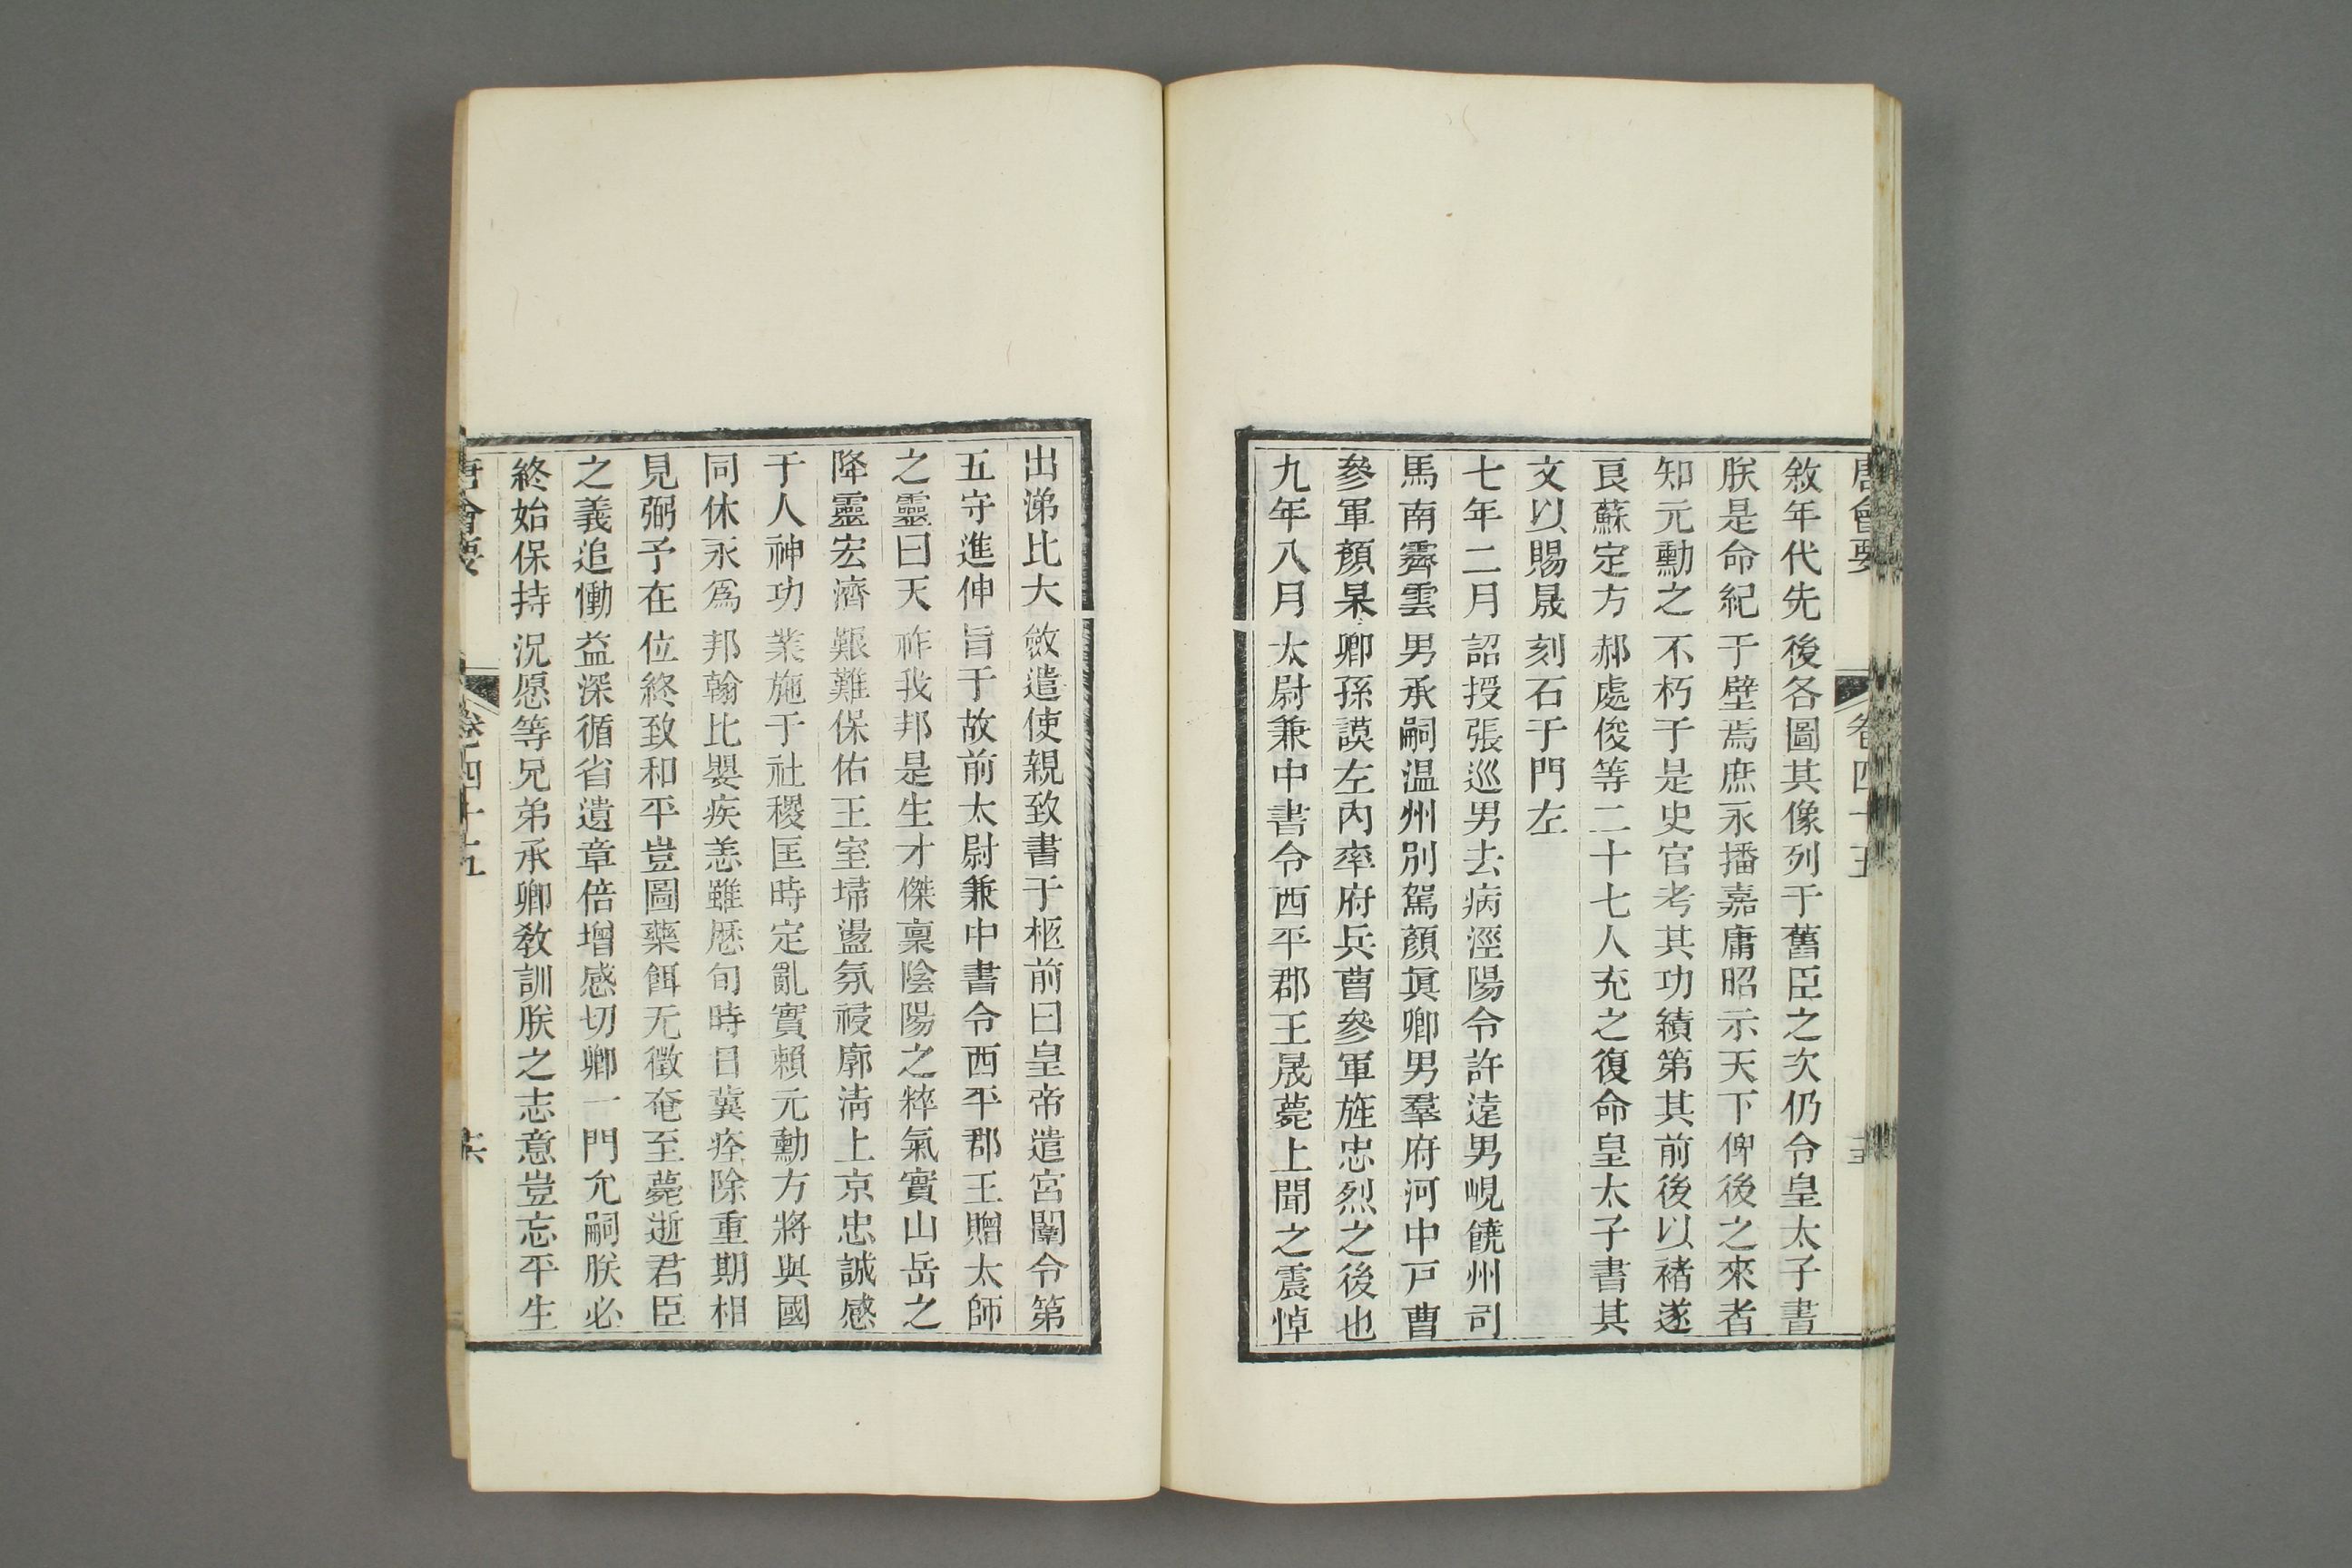 唐會要 卷四十五
敘年代先後各圖其像列于舊臣之次仍令皇太子書
朕是命紀于壁焉庶永播嘉庸昭示天下俾後之來者
知元勳之不朽于是史官考其功績第其前後以褚遂
良蘇定方郝處俊等二十七人充之復命皇太子書其
文以賜晟刻石于門左
七年二月詔授張巡男去病涇陽令許遠男峴饒州司
馬南霽雲男承嗣温州別駕顏眞卿男羣府河中戸曹
參軍顏杲卿孫謨左內率府兵曹參軍旌忠烈之後也
九年八月太尉兼中書令西平郡王晟薨上聞之震悼
出涕比大斂遣使親致書于柩前曰皇帝遣宮闈令第
五守進伸旨于故前太尉兼中書令西平郡王贈太師
之靈曰天祚我邦是生才傑稟陰陽之粹氣實山岳之
降靈宏濟艱難保佑王室埽盪氛祲廓淸上京忠誠感
于人神功業施于社稷匡時定亂實賴元勳方將與國
同休永爲邦翰比嬰疾恙雖歷旬時日冀痊除重期相
見弼予在位終致和平豈圖藥餌无徵奄至薨逝君臣
之義追慟益深循省遺章倍增感切卿一門允嗣朕必
終始保持況愿等兄弟承卿敎訓朕之志意豈忘平生
唐會要 卷四十五 十六